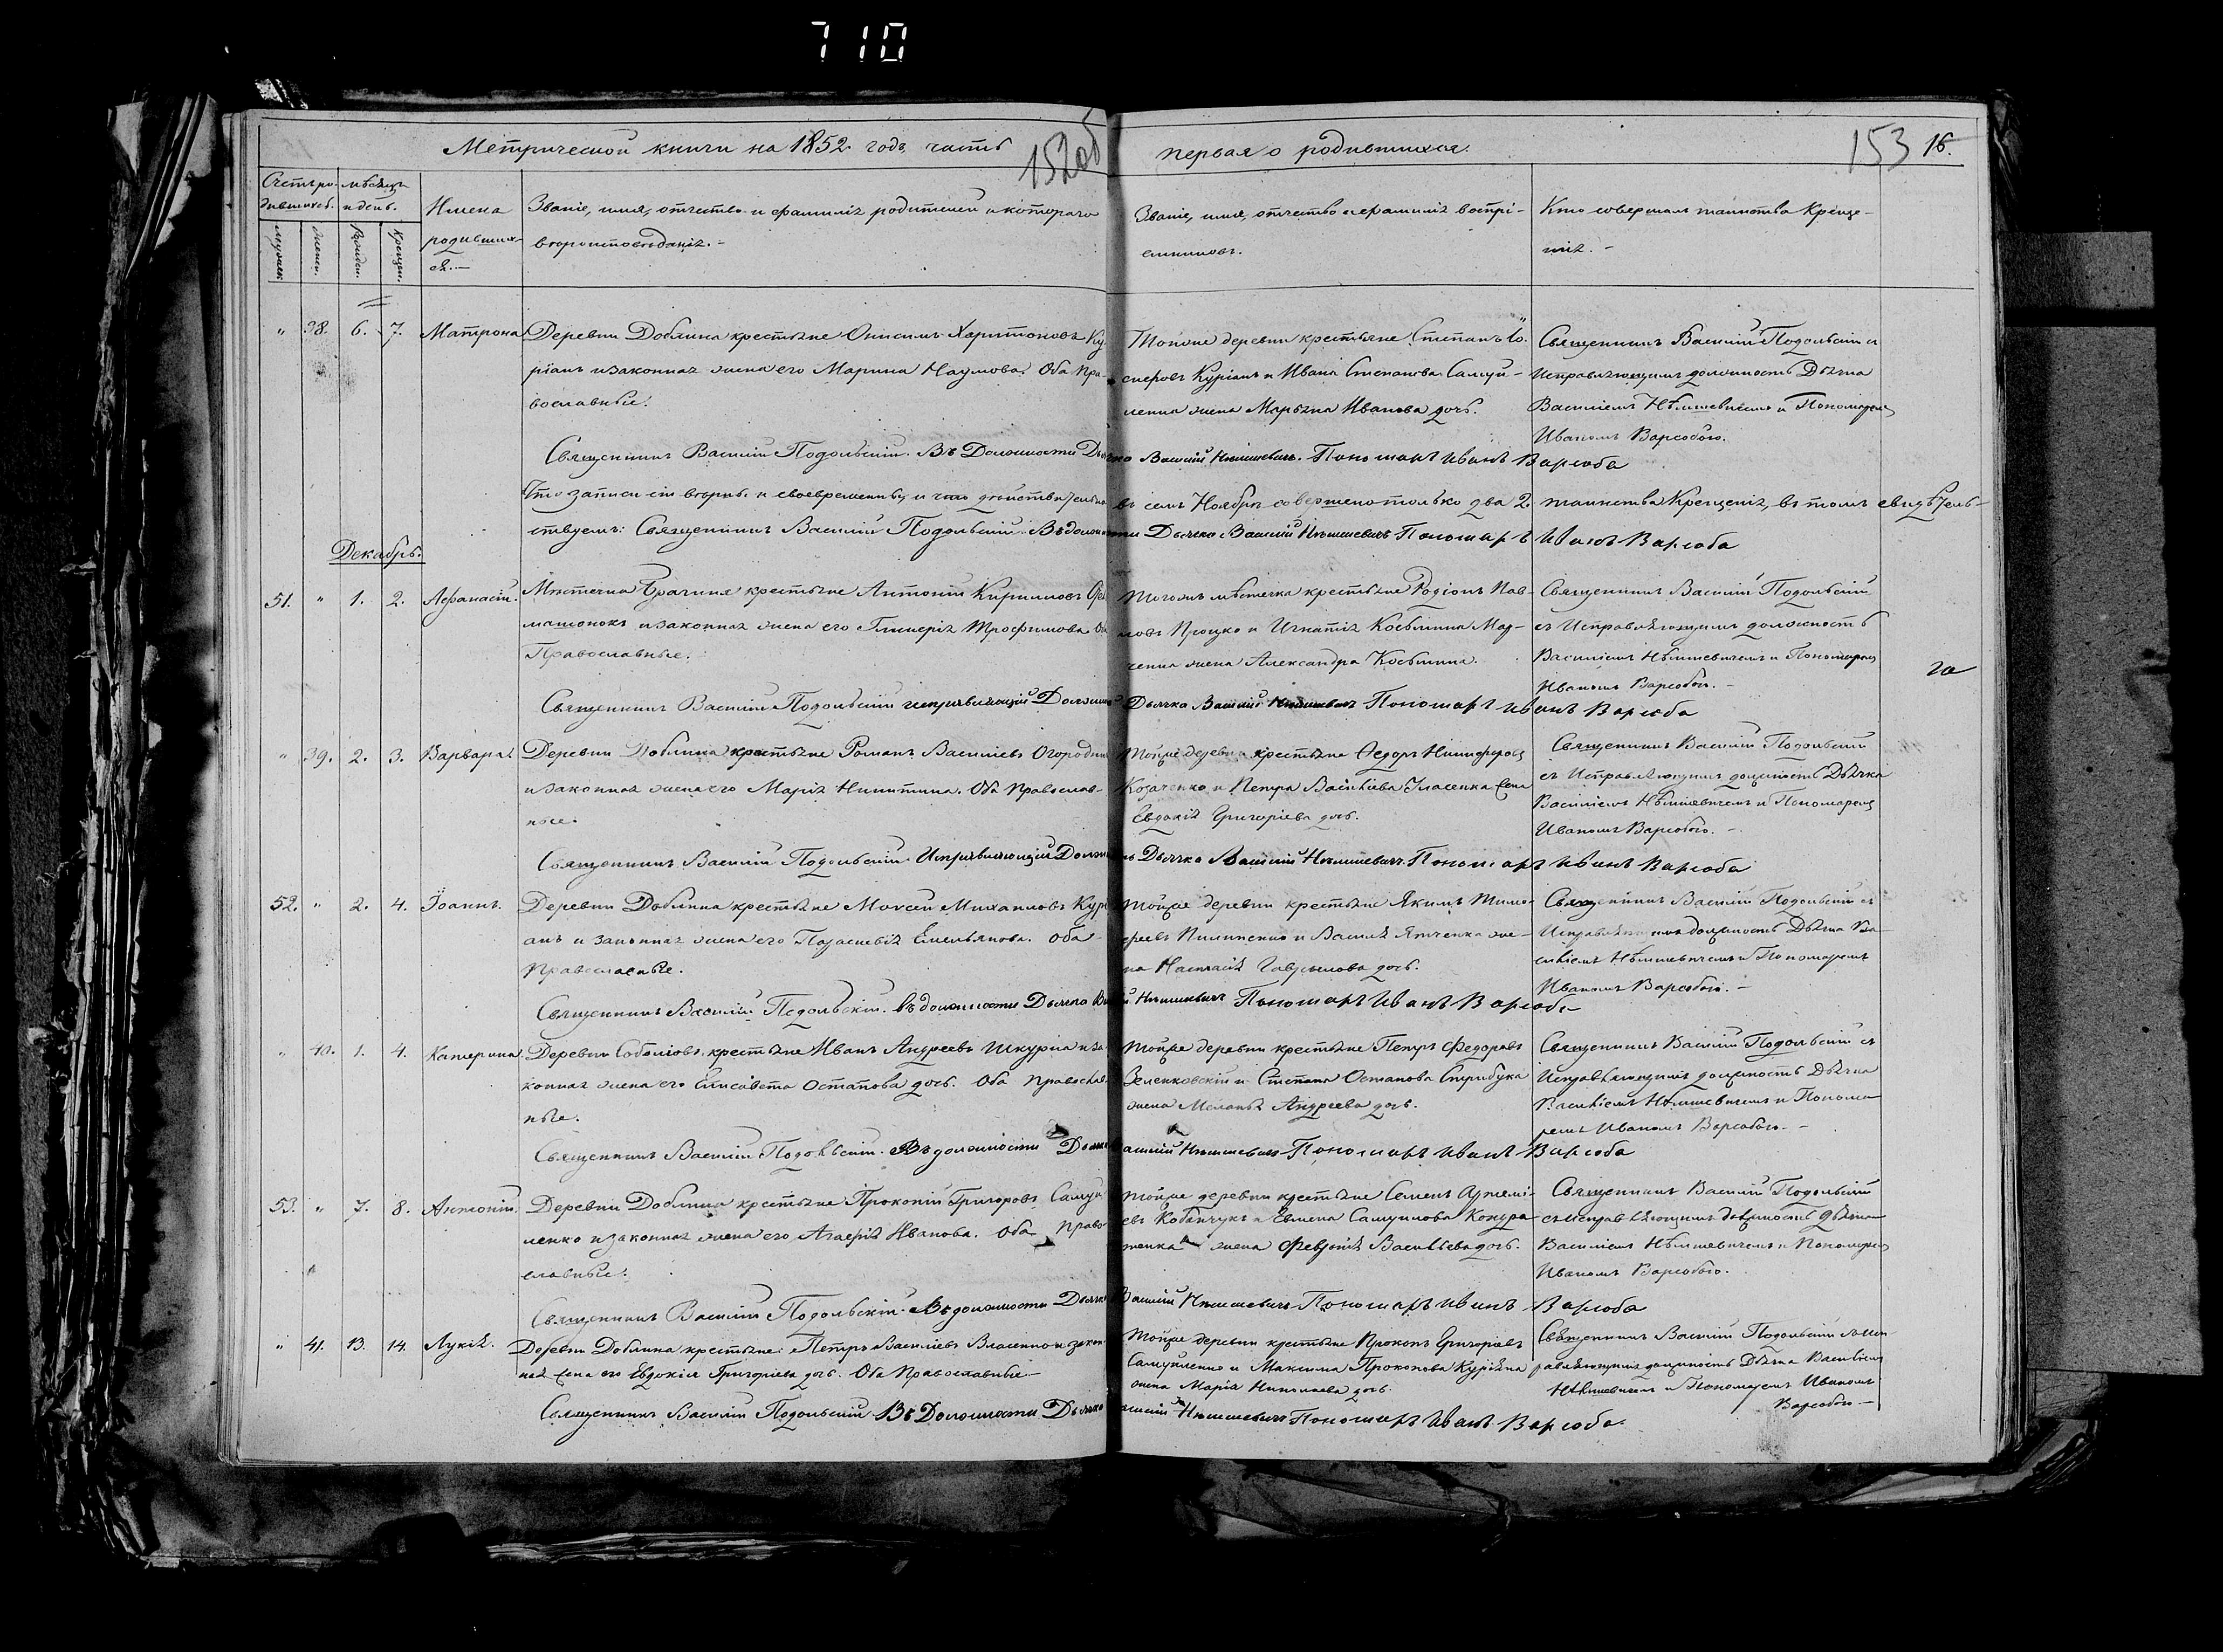 710
Метрической книги на 1852. годъ, часть
152об
первая о родившихся.
153 16.
Счетъ ро- мѣсяцъ
дившихся. и день.
Имена
родивших-
ся.—
Званіе, имя, отчество и фамилія родителей и котораго
вѣроисповѣданія.—
Званіе, имя, отчество и фамилія воспрі-
емниковъ.
Кто совершалъ таинство Креще-
нія.—
мужеск.
женск.
Рожден.
Крещен.
" 38. 6. 7. Матрона
Деревни Доблина крестьяне Онисимъ Харитоновъ Ку-
ріанъ и законная жена его Марина Наумова. Оба Пра-
вославные.
Тойже деревни крестьяне Степанъ Іо-
сифовъ Куріанъ и Ивана Степанова Самуй-
ленка жена Марьяна Иванова дочь.
Священникъ Василій Подольскій съ
Исправляющимъ должность Дьячка
Василіемъ Нѣмшевичемъ и Пономаремъ
Иваномъ Варсобою.
Священникъ Василій Подольскій. Въ Должности Дьячка Василій Нѣмшевичъ. Пономарь Иванъ Варсоба
Что записи сіи вѣрны и своевременны, и что дѣйствительно въ семъ Ноябрѣ совершено только два 2. таинства Крещенія, въ томъ свидѣтель-
ствуемъ: Священникъ Василій Подольскій. Въ должности Дьячка Василій Нѣмшевичъ Пономарь Иванъ Варсоба
Декабрь.
51. " 1. 2. Афанасій.
Мѣстечка Брагиня крестьяне Антоній Кириловъ
и законная жена его Гликерія Трофимова. Оба
Православные.
Тогожъ мѣстечка крестьяне Родіонъ Пав-
ловъ Процко и Игнатія Козьмина Мар-
ченка жена Александра Козьмина.
Священникъ Василій Подольскій
съ Исправляющимъ должность
Василіемъ Нѣмшевичемъ и Пономаремъ
Иваномъ Варсобою.—
Священникъ Василій Подольскій исправляющій Должность Дьячка Василій Нѣмшевичъ Пономарь Иванъ Варсоба
" 39. 2. 3. Варвара.
Деревни Доблина крестьяне Романъ Василіевъ Огородник
и законная жена его Марія Никитина. Оба Православ-
ные.
Тойже деревни крестьяне Федоръ Никифоровъ
Козаченко и Петра Васильева Власенка жена
Евдокія Григоріева дочь.
Священникъ Василій Подольскій
съ Исправляющимъ должность Дьячка
Василіемъ Нѣмшевичемъ и Пономаремъ
Иваномъ Варсобою.—
Священникъ Василій Подольскій. Исправляющій Должность Дьячка Василій Нѣмшевичъ. Пономарь Иванъ Варсоба
52. " 2. 4. Іоаннъ.
Деревни Доблина крестьяне Моисей Михаиловъ Кур
анъ и законная жена его Параскевія Емельянова. Оба
Православные.
Тойже деревни крестьяне Якимъ Тимо-
феевъ Пилипенко и Василія Ятченка же-
на Настасія Гаврилова дочь.
Священникъ Василій Подольскій съ
Исправляющимъ должность Дьячка Ва-
силіемъ Нѣмшевичемъ и Пономаремъ
Иваномъ Варсобою.—
Священникъ Василій Подольскій. Въ должности Дьячка Василій Нѣмшевичъ Пономарь Иванъ Варсоба
" 40. 1. 4. Катерина.
Деревни Соболіовъ крестьяне Иванъ Андреевъ Шкурка и за-
конная жена его Елисавета Остапова дочь. Оба Православ-
ные.
Тойже деревни крестьяне Петръ Федоровъ
Зеленковскій и Степана Остапова Стрибука
жена Меланія Андреева дочь.
Священникъ Василій Подольскій съ
Исправляющимъ должность Дьячка
Василіемъ Нѣмшевичемъ и Понома-
ремъ Иваномъ Варсобою.—
Священникъ Василій Подольскій. Въ должности Дьячка Василій Нѣмшевичъ Пономарь Иванъ Варсоба
53. " 7. 8. Антоній.
Деревни Доблина крестьяне Прокопій Григоровъ Самуй
ленко и законная жена его Агафія Иванова. Оба Право-
славные.
Тойже деревни крестьяне Семенъ Артемі-
евъ Кобанчукъ и Евмена Самуилова Кондра-
тенка жена Февронія Васильева дочь.
Священникъ Василій Подольскій
съ Исправляющимъ должность Дьячка
Василіемъ Нѣмшевичемъ и Пономаремъ
Иваномъ Варсобою.
Священникъ Василій Подольскій. Въ должности Дьячка Василій Нѣмшевичъ Пономарь Иванъ Варсоба
" 41. 13. 14. Лукія.
Деревни Доблина крестьяне: Петръ Василіевъ Власенко и закон-
ная жена его Евдокія Григоріева дочь. Оба Православные.—
Тойже деревни крестьяне Прокопъ Григоріевъ
Самуйленко и Максима Прокопова Куріяна
жена Марія Николаева дочь.
Священникъ Василій Подольскій съ Исп-
равляющимъ должность Дьячка Василіемъ
Нѣмшевичемъ и Пономаремъ Иваномъ
Варсобою.—
Священникъ Василій Подольскій. Въ Должности Дьячка Василій Нѣмшевичъ Пономарь Иванъ Варсоба.